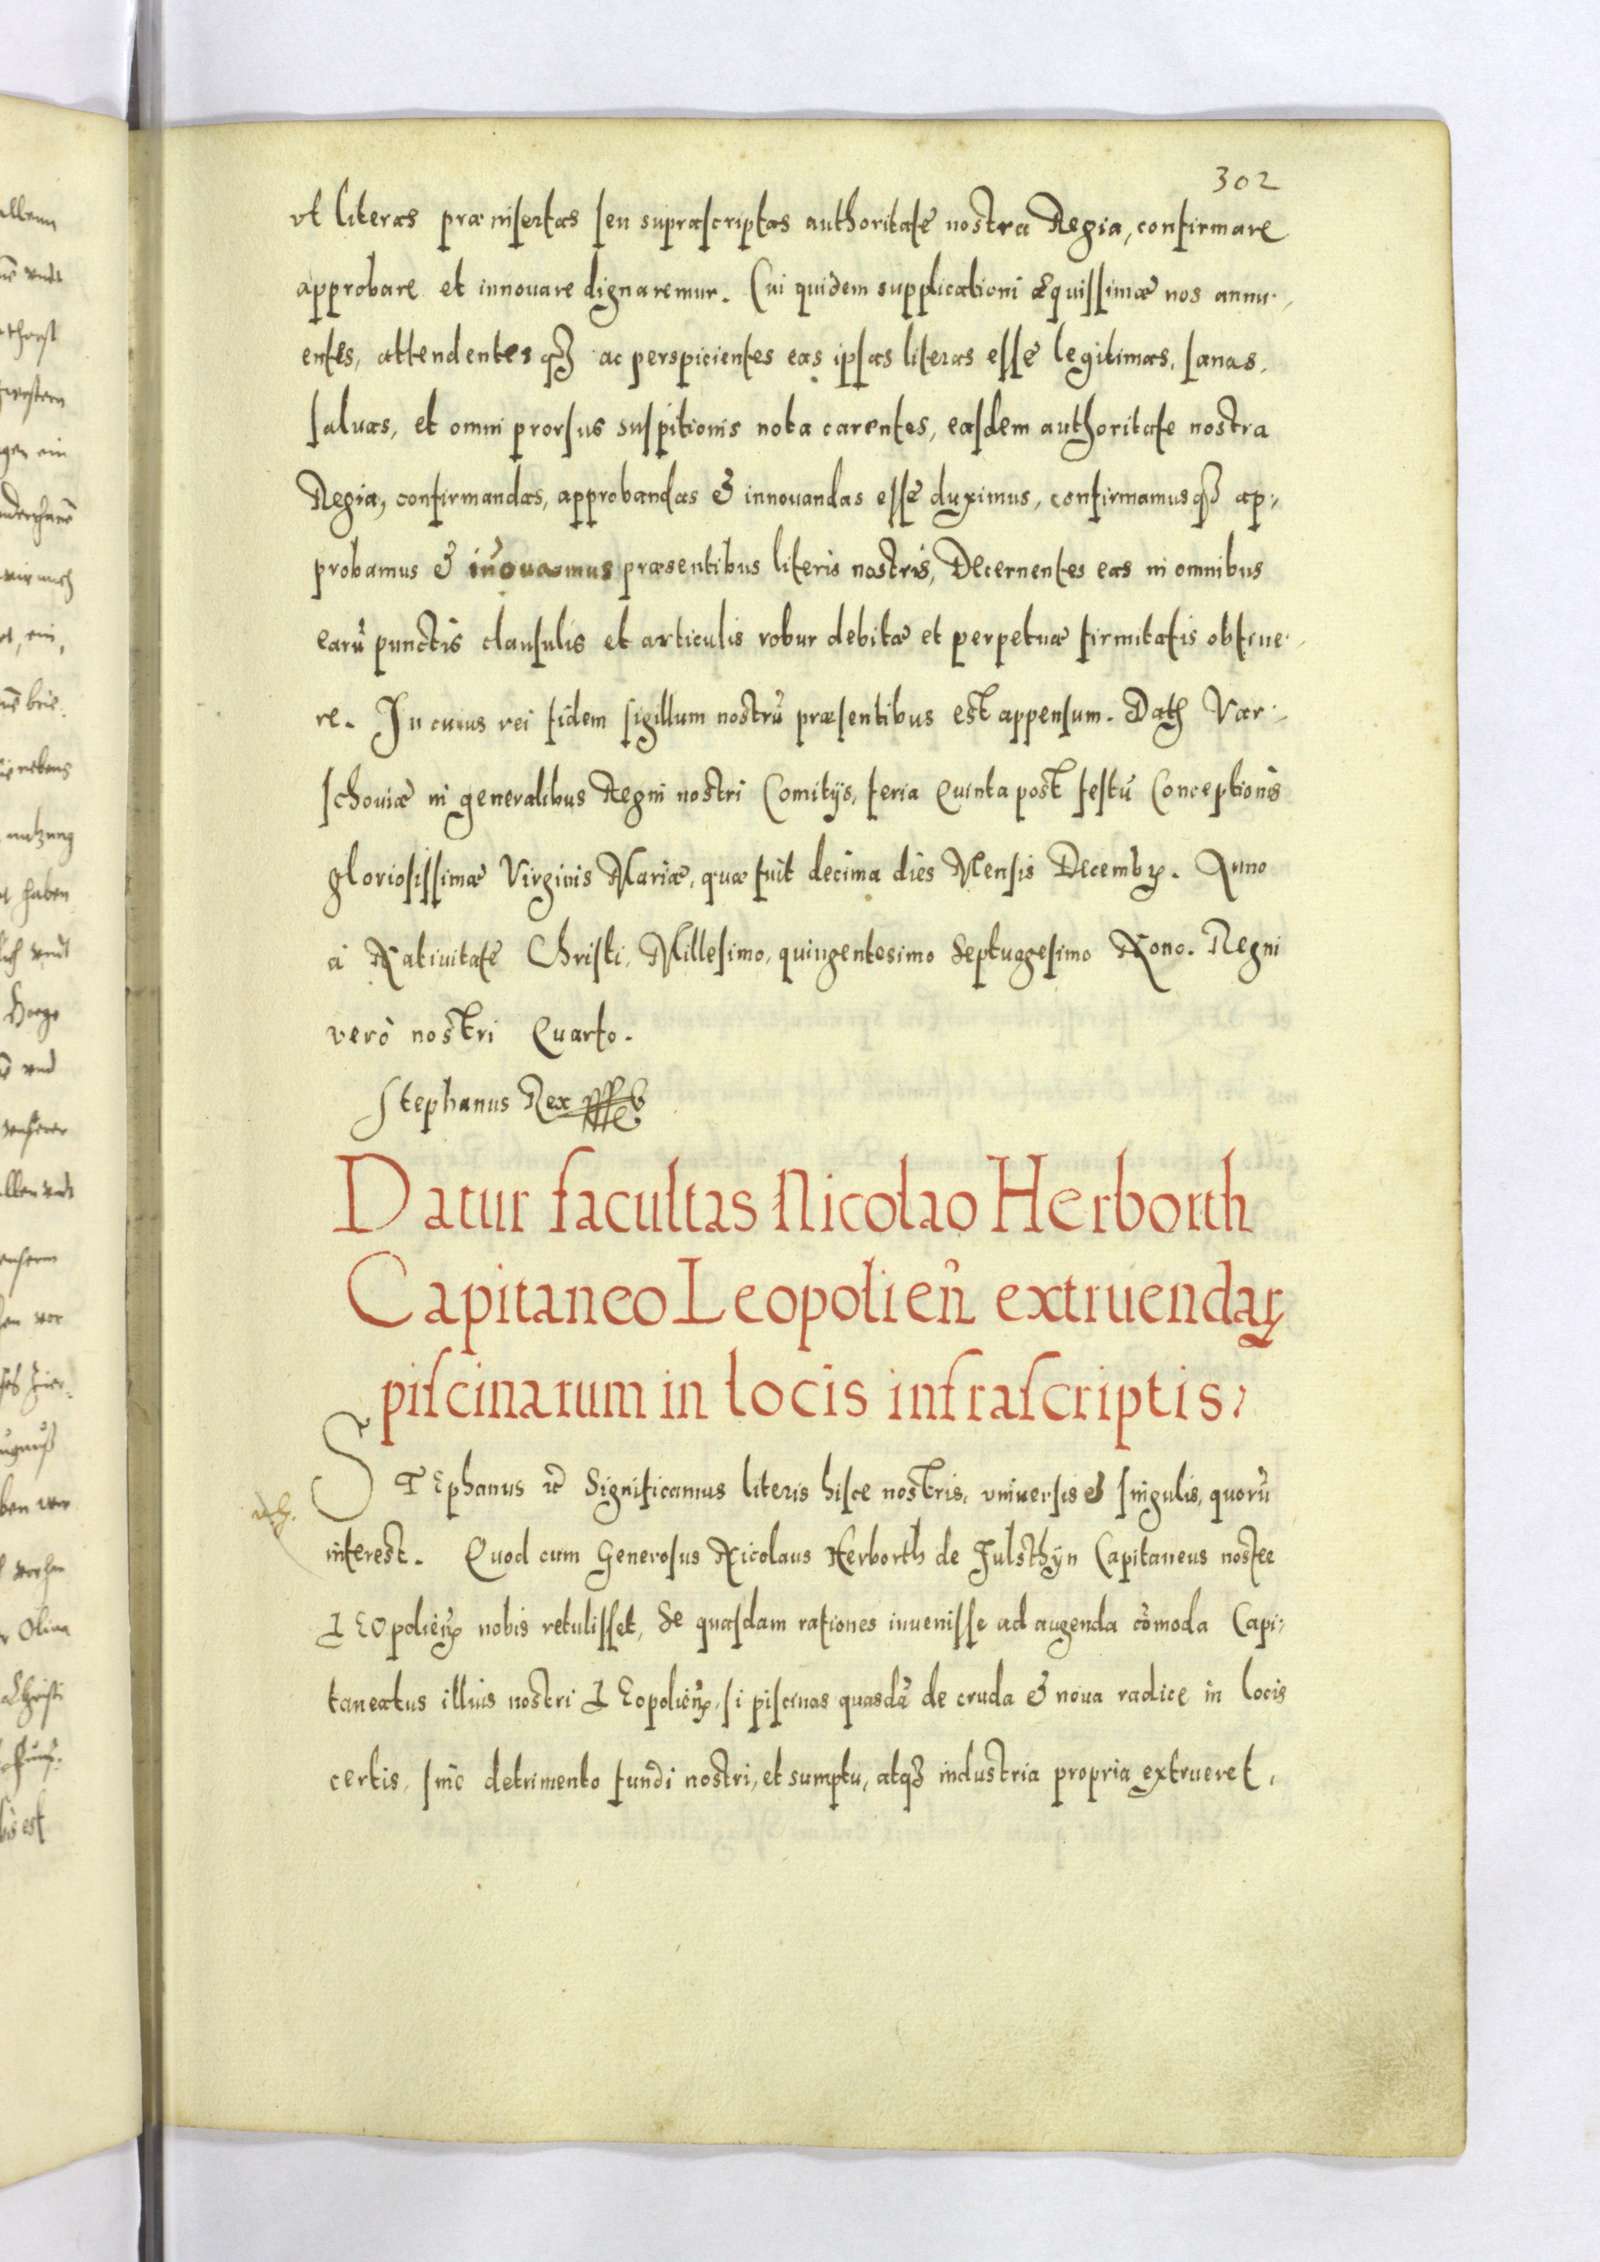 302
ut literas præinsertas seu suprascriptas authoritate nostra Regia, confirmare
approbare et innouare dignaremur. Cui quidem supplicationi æquissimæ nos annu-
entes, attendentesq3 ac perspicientes eas ipsas literas esse legitimas, sanas,
saluas, et omni prorsus suspitionis nota carentes, easdem authoritate nostra
Regia, confirmandas, approbandas & innouandas esse duximus, confirmamusq3 ap-
probamus & iñouamus præsentibus literis nostris, Decernentes eas in omnibus
earũ punctis clausulis et articulis robur debitæ et perpetuæ firmitatis obtine-
re. In cuius rei fidem sigillum nostrũ præsentibus est appensum. Dat Var-
schouiæ in generalibus Regni nostri Comitijs, feria Quinta post festũ Conceptionis
gloriosissimæ Virginis Mariæ, quæ fuit decima dies Mensis Decembꝝ. Anno
à Natiuitate Christi, Millesimo, quingentesimo Septuagesimo Nono. Regni
verò nostri Quarto.
Stephanus Rex
Datur facultas Nicolao Herborth
Capitaneo Leopolieñ extruendaꝝ
piscinarum in locis infrascriptis,
STEphanus etc Significamus literis hisce nostris, vniuersis & singulis, quorũ
interest. Quod cum Generosus Nicolaus Herborth de Fulsthÿn Capitaneus noster
LEOpolieñ nobis retulisset, Se quasdam rationes inuenisse ad augenda cõmoda Capi-
taneatus illius nostri LEopolieñ, si piscinas quasdã de cruda & noua radice in locis
certis, sine detrimento fundi nostri, et sumptu, atq3 industria propria extrueret,